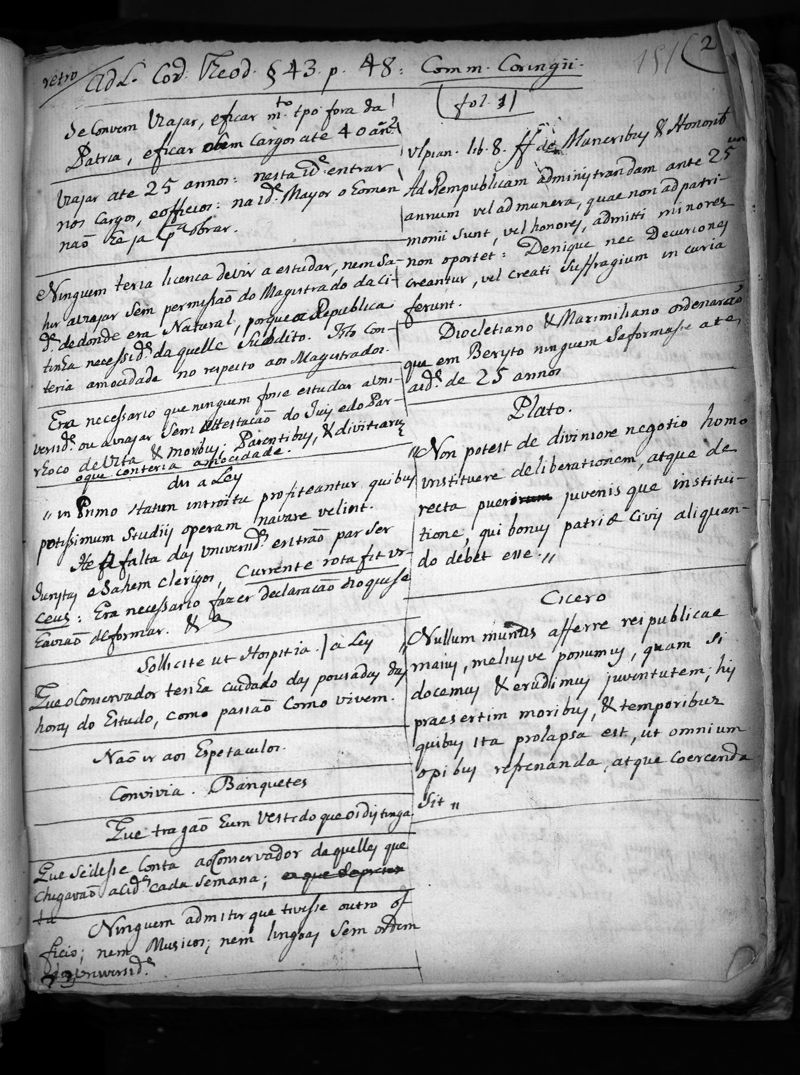 retro
ad L. Cod. Theod. § 43. p. 48: Comm. Coringii.
151 2
(fol. 1)
Se Convem Viajar, eficar m.to tpo fora da
Patria, eficar sem Cargos ate 40 an.os
Viajar ate 25 annos: nesta id.e entrar
nos Cargos, eofficios: na id.e Mayor o homem
não he ja p.a obrar.
Ninguem teria licenca de ir a estudar, nem Sa-
hir aviajar Sem permissão do Magistrado da Ci-
d.e dedonde era Natural, porque a Republica
tinha necessid.e daquelle Subdito. Isto Con-
teria amocidade no respeito aos Magistrados.
Era necessario que ninguem fosse estudar a Uni-
versid.e ou aviajar Sem attestacão do Juiz edo Par-
rhoco de Vita & moribus, Parentibus, & divitiarum
oque conteria amocidade.
dis a Ley
,, in Primo statim introitu profiteantur quibus
potissimum Studiis operam navare velint.
He falta das Universid.es entrão par Ser
Juristas e Sahem clerigos, Currente rota fit ur-
ceus: Era necessario fazer declaracão doquese
havião deformar. &a
Sollicite ut Hospitia. | a Ley
Que oConservador tenha cuidado das pousadas das
horas do Estudo, como passão Como vivem.
Não ir aos Espetaculos.
Convivia. Banquetes
Que tragão hum vestido que os distinga
Que Sedesse Conta aoConservador daquelles que
chegavão acid.e cada Semana;
Ninguem admitir que tivesse outro of
ficio; nem Musicos; nem lingoas Sem ordem
da Universid.e
Ulpian. lib. 8. ff de Muneribus & Honorib
Ad Rempublicam administrandam ante 25 um
annum vel ad munera, quae non ad patri-
monii sunt, vel honores, admitti minores
non oportet: Denique nec Decuriones
creantur, vel creati Suffragium in curia
ferunt.
Diocletiano & Maximiliano ordenarão
que em Beryto ninguem Seformasse ate
aid.e de 25 annos
Plato.
,,Non potest de diviniore negotio homo
instituere deliberationem, atque de
recta juvenis que institui-
tione, qui bonus patriæ Civis aliquan-
do debet esse.,,
Cicero
,,Nullum munus afferre reipublicae
maius, meliusve possumus, quam Si
docamus & erudimus juventutem; his
praesertim moribus, & temporibus
quibus ita prolapsa est, ut omnium
opibus refrenanda, atque coercenda
sit ,,